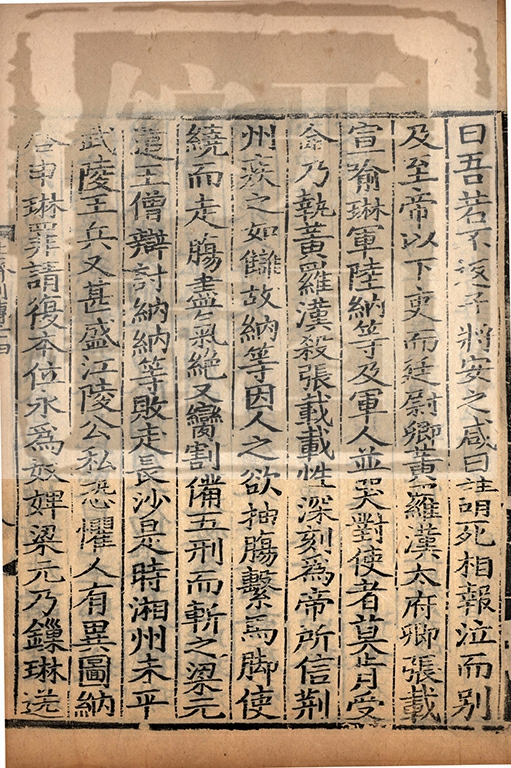 曰吾若不返子將安之咸曰請死相報泣而别
及至帝以下吏而廷尉卿黄羅漢太府卿張載
宣喻琳軍陸納等及軍人並哭對使者莫肯受
命乃執黄羅漢殺張載載性深刻為帝所信荆
州疾之如讎故納等因人之欲抽膓繫馬脚使
繞而走膓盡氣絶又臠割備五刑而斬之梁元
遣王僧辯討納納等敗走長沙是時湘州未平
武陵王兵又甚盛江陵公私恐懼人有異圖納
啓申琳罪請復本位永為奴婢梁元乃鏁琳送